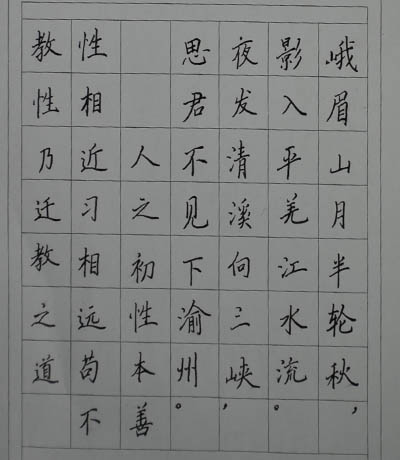 峨眉山月半轮秋，
影入平羌江水流。
夜发清溪向三峡，
思君不见下渝州。
人之初性本善
性相近习相远苟不
教性乃迁教之道